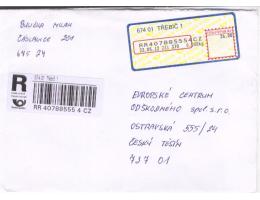 BRUCHA MILAN
ČÁSLAVICE 201
675 24
674 01 TŘEBÍČ 1
RR407885554CZ
R
674 01 Třebíč 1
RR 40788555 4 CZ
EVROPSKÉ CENTRUM
ODŠKODNĚHO spol. s.r.o.
OSTRAVSKÁ 555/24
ČESKÝ TĚŠÍN
737 01